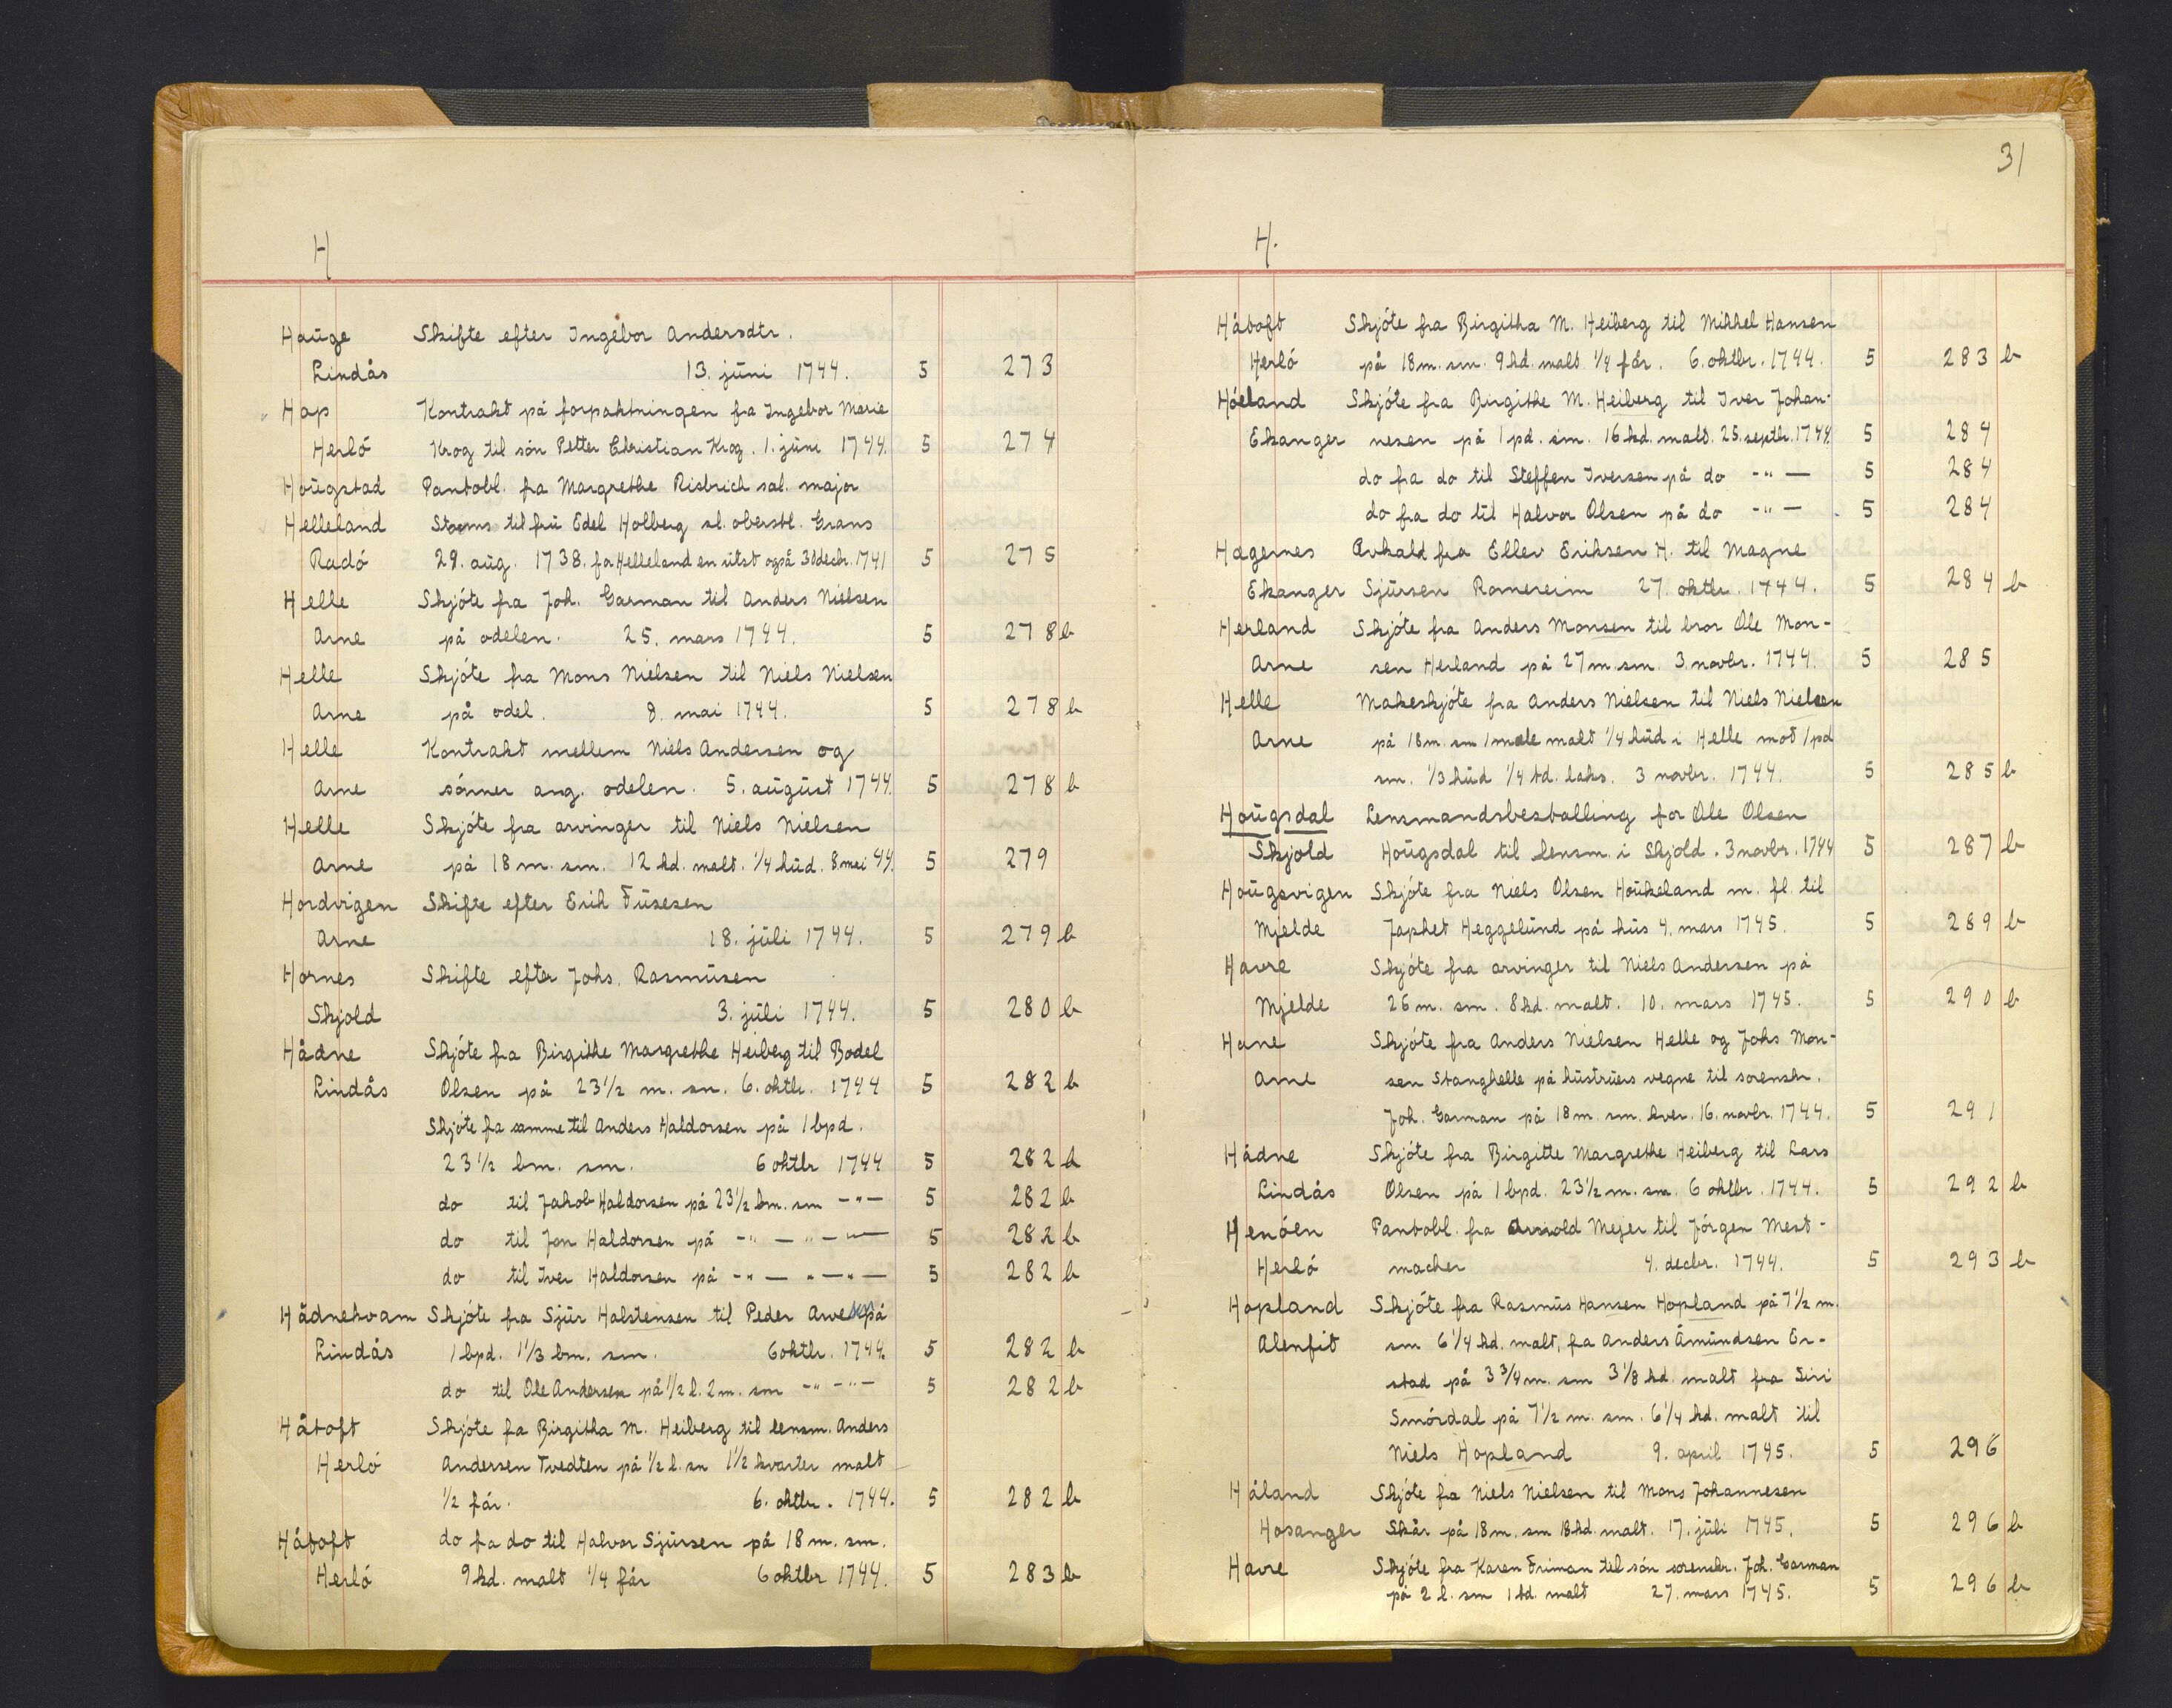 H
Haŭge Skifte efter Ingebor Andersdtr.
Lindås 13. jŭni 1744. 5 273
Hop Kontrakt på forpaktningen fra Ingebor Marie
Herló Krog til són Petter Christian Krog. 1. jŭni 1744. 5 274
Hoŭgstad Pantobl. fra Margrethe Risbrich sal. major
Helleland Storms til frŭ Edel Holberg sl. oberstl. Grans
Radó 29. aŭg. 1738. for Helleland en utst også 30 decbr. 1741 5 275
Helle Skjóte fra Joh. Garman til Anders Nielsen
Arne på odelen. 25. mars 1744. 5 278 b
Helle Skjóte fra Mons Nielsen til Niels Nielsen
Arne på odel. 8. mai 1744. 5 278 b
Helle Kontrakt mellem Niels Andersen og
Arne sónner ang. odelen. 5. aŭgŭst 1744. 5 278 b
Helle Skjóte fra arvinger til Niels Nielsen
Arne på 18 m. sm. 12 kd. malt. 1/4 hŭd. 8 mai 44. 5 279
Hordvigen Skifte efter Erik Fŭsesen
Arne 18. jŭli 1744. 5 279 b
Hornes Skifte efter Johs. Rasmŭsen
Skjold 3. jŭli 1744. 5 280 b
Hådne Skjóte fra Birgithe Margrethe Heiberg til Bodel
Lindås Olsen på 23 1/2 m. sm. 6. oktbr. 1744 5 282 b
Skjóte fra samme til Anders Haldorsen på 1 bpd.
23 1/2 bm. sm. 6 oktbr 1744 5 282 b
do til Jakob Haldorsen på 23 1/2 bm. sm -"- 5 282 b
do til Jon Haldorsen på -"- -"- -"- 5 282 b
do til Iver Haldorsen på -"- -"- -"- 5 282 b
Hådnekvam Skjóte fra Sjŭr Halstensen til Peder Arvesen på
Lindås 1 bpd. 1 1/3 bm. sm. 6 oktbr. 1744. 5 282 b
do til Ole Andersen på 1/2 l. 2 m. sm -"- -"- 5 282 b
Håtoft Skjóte fra Birgitha M. Heiberg til lensm. Anders
Herló Andersen Tvedten på 1/2 l. sm 1 1/2 kvarter malt
1/2 får. 6. oktbr. 1744. 5 282 b
Håtoft do fra do til Halvor Sjŭrsen på 18 m. sm.
Herló 9 kd. malt 1/4 får 6 oktbr 1744. 5 283 b
31
H.
Håtoft Skjóte fra Birgitha M. Heiberg til Mikkel Hansen
Herló på 18 m. sm. 9 kd. malt 1/4 får. 6. oktbr. 1744. 5 283 b
Hóeland Skjóte fra Birgithe M. Heiberg til Iver Johan-
Ekanger nesen på 1 pd. sm. 16 kd. malt. 25. septbr. 1744. 5 284
do fra do til Steffen Iversen på do -"- 5 284
do fra do til Halvor Olsen på do -"- 5 284
Hægernes Avkald fra Ellev Eriksen H. til Magne
Ekanger Sjŭrsen Romereim 27. oktbr. 1744. 5 284 b
Herland Skjóte fra Anders Monsen til bror Ole Mon-
Arne sen Herland på 27 m. sm. 3. novbr. 1744. 5 285
Helle Makeskjóte fra Anders Nielsen til Niels Nielsen
Arne på 18 m. sm 1 mæle malt 1/4 hŭd i Helle mot 1 pd
sm. 1/3 hŭd 1/4 td. laks. 3 novbr. 1744. 5 285 b
Hoŭgsdal Lensmandsbestalling for Ole Olsen
Skjold Hoŭgsdal til lensm. i Skjold. 3 novbr. 1744 5 287 b
Hoŭgsvigen Skjóte fra Niels Olsen Hoŭkeland m. fl. til
Mjelde Japhet Heggelŭnd på hŭs 4. mars 1745. 5 289 b
Havre Skjóte fra arvinger til Niels Andersen på
Mjelde 26 m. sm. 8 kd. malt. 10. mars 1745. 5 290 b
Hane Skjóte fra Anders Nielsen Helle og Johs Mon-
Arne sen Stanghelle på hŭstrŭers vegne til sorenskr.
Joh. Garman på 18 m. sm. hver. 16. novbr. 1744. 5 291
Hådne Skjóte fra Birgitte Margrethe Heiberg til Lars
Lindås Olsen på 1 bpd. 23 1/2 m. sm. 6 oktbr. 1744. 5 292 b
Henóen Pantobl. fra Arnold Mejer til Jórgen Mest-
Herló macher 4. decbr. 1744. 5 293 b
Hopland Skjóte fra Rasmŭs Hansen Hopland på 7 1/2 m.
Alenfit sm 6 1/4 kd. malt, fra Anders Åmŭndsen Er-
stad på 3 3/4 m. sm 3 1/8 kd. malt fra Siri
Smórdal på 7 1/2 m. sm. 6 1/4 kd. malt til
Niels Hopland 9. april 1745. 5 296
Håland Skjóte fra Niels Nielsen til Mons Johannesen
Hosanger Skår på 18 m. sm 18 kd. malt. 17. jŭli 1745. 5 296 b
Havre Skjóte fra Karen Friman til són sorenskr. Joh. Garman
på 2 l. sm 1 td. malt 27. mars 1745. 5 296 b